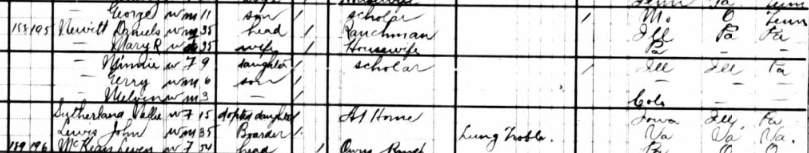 George W M 11 son / scholar 1 Mo O Tenn
188 195 Newitt Daniels W M 35 head / Ranchman Ill Pa Pa
— Mary R W 35 wife / Housewife Pa — —
— Minnie W F 9 daughter / scholar / Ill Ill Pa
— Gerry W M 6 son / — — —
— Melvin W M 3 — / Colo — —
Sutherland Vallie W F 15 adopted daughter / At Home Iowa Ill Pa
Lewis John W M 35 Boarder / Lung Troble. Va Va Va.
189 196 McKean W F 54 head / Owns Ranch Pa O O